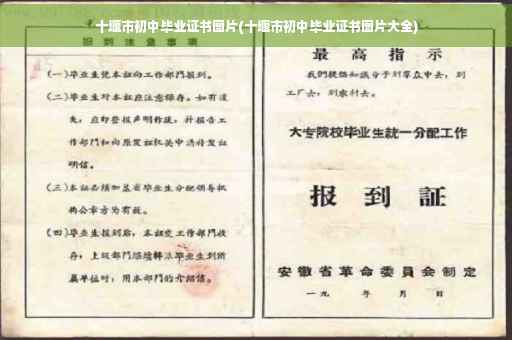 十堰市初中毕业证书图片(十堰市初中毕业证书图片大全)
报到注意事项
(一)毕业生凭本证向工作部门报到。
(二)毕业生对本证应注意保存。如有遗
失,应即登报声明作废,并报告工
作部门和向原发证机关申请补发证
明信。
(三)本证必须加盖省毕业生分配领导机
构公章方为有效。
(四)毕业生报到后,本证交工作部门收
存;上级部门继续转派毕业生到所
属单位时,用本部门的介绍信。
最高指示
我們提倡知識分子到羣众中去,到
工厂去,到农村去。
大专院校毕业生統一分配工作
报到証
安徽省革命委員会制定
一九 年 月 日